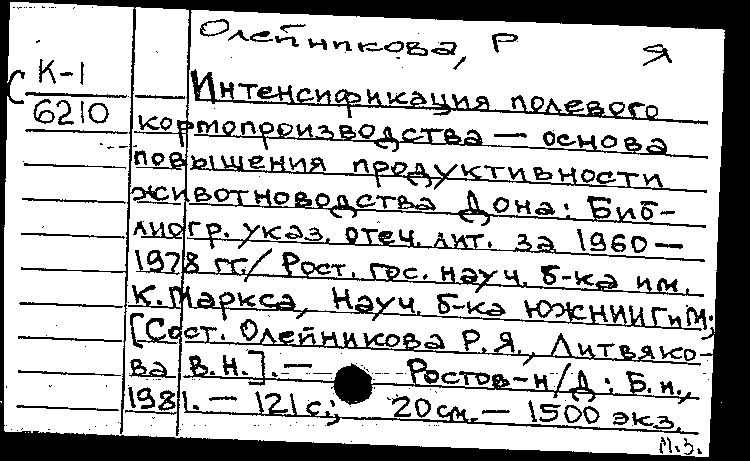 Олейникова, Р Я
С К-1
6210
Интенсификация полевого
кормопроизводства — основа
повышения продуктивности
животноводства Дона: Биб-
лиогр. указ. отеч. лит. за 1960 —
1978 гг./ Рост. гос. науч. б-ка им.
К. Маркса, Науч. б-ка ЮЖНИИГиМ;
[Сост. Олейникова Р.Я., Литвяко-
ва В.Н.]. — Ростов-н/Д : Б.и.,
1981. — 121 с.; 20 см. — 1500 экз.
М.З.